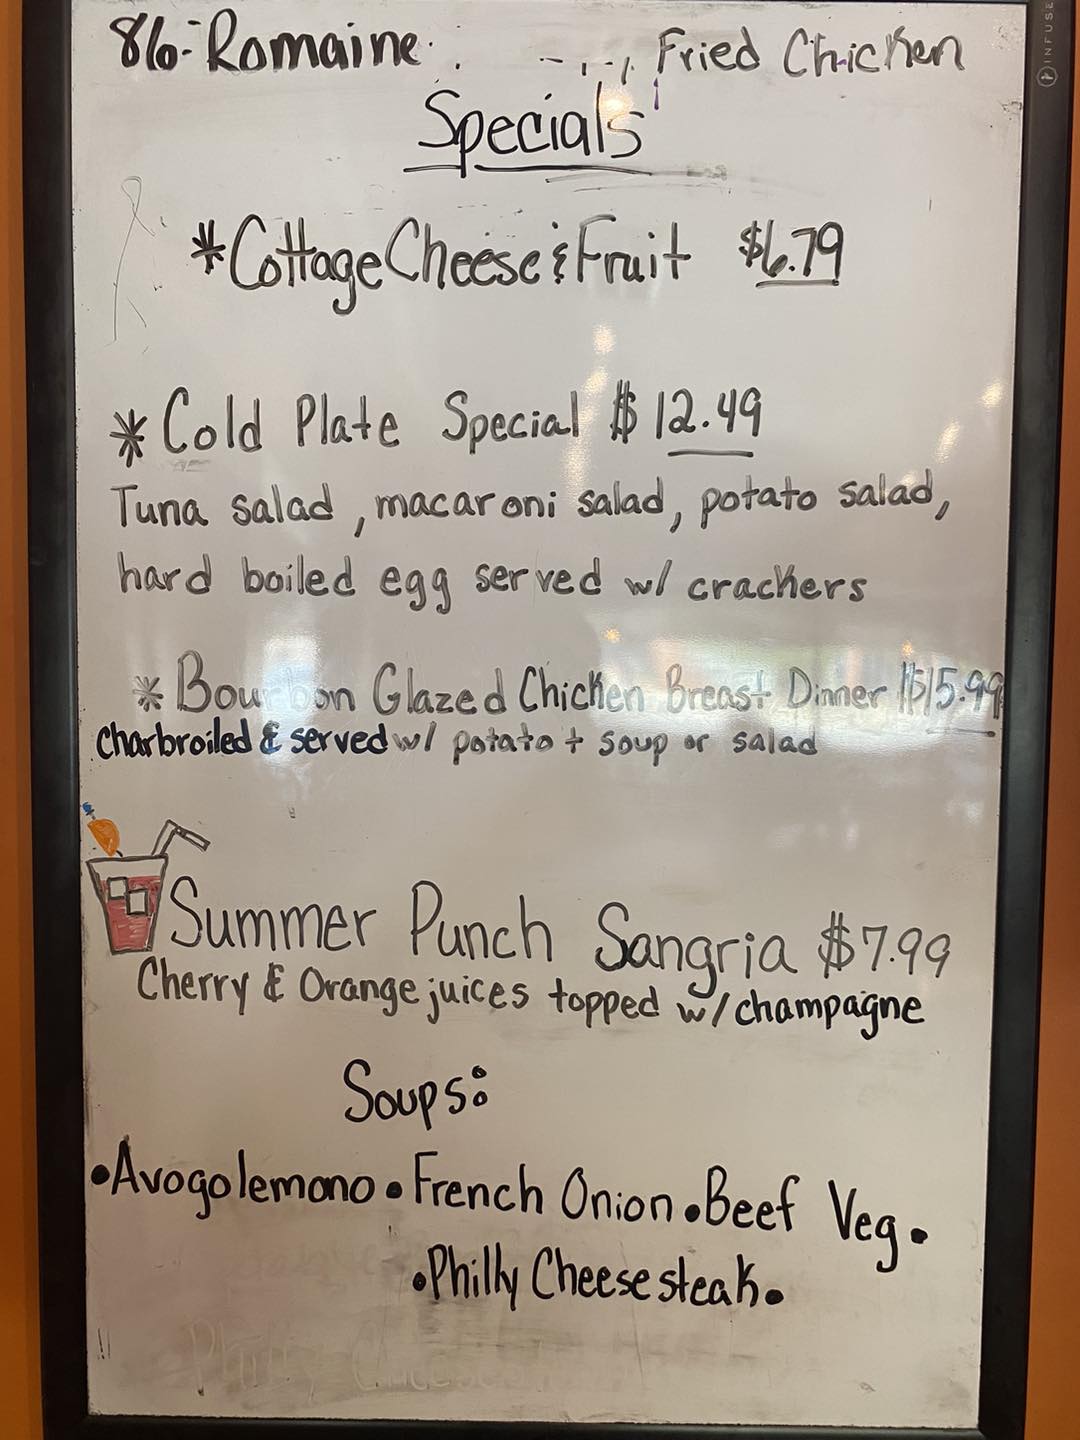 86- Romaine Fried Chicken
INFUSE
Specials
*Cottage Cheese & Fruit $6.79
*Cold Plate Special $12.49
Tuna salad, macaroni salad, potato salad,
hard boiled egg served w/ crackers
*Bourbon Glazed Chicken Breast Dinner $15.99
charbroiled & served w/ potato + soup or salad
Summer Punch Sangria $7.99
Cherry & Orange juices topped w/ champagne
Soups:
•Avogolemono •French Onion •Beef Veg•
•Philly Cheesesteak•